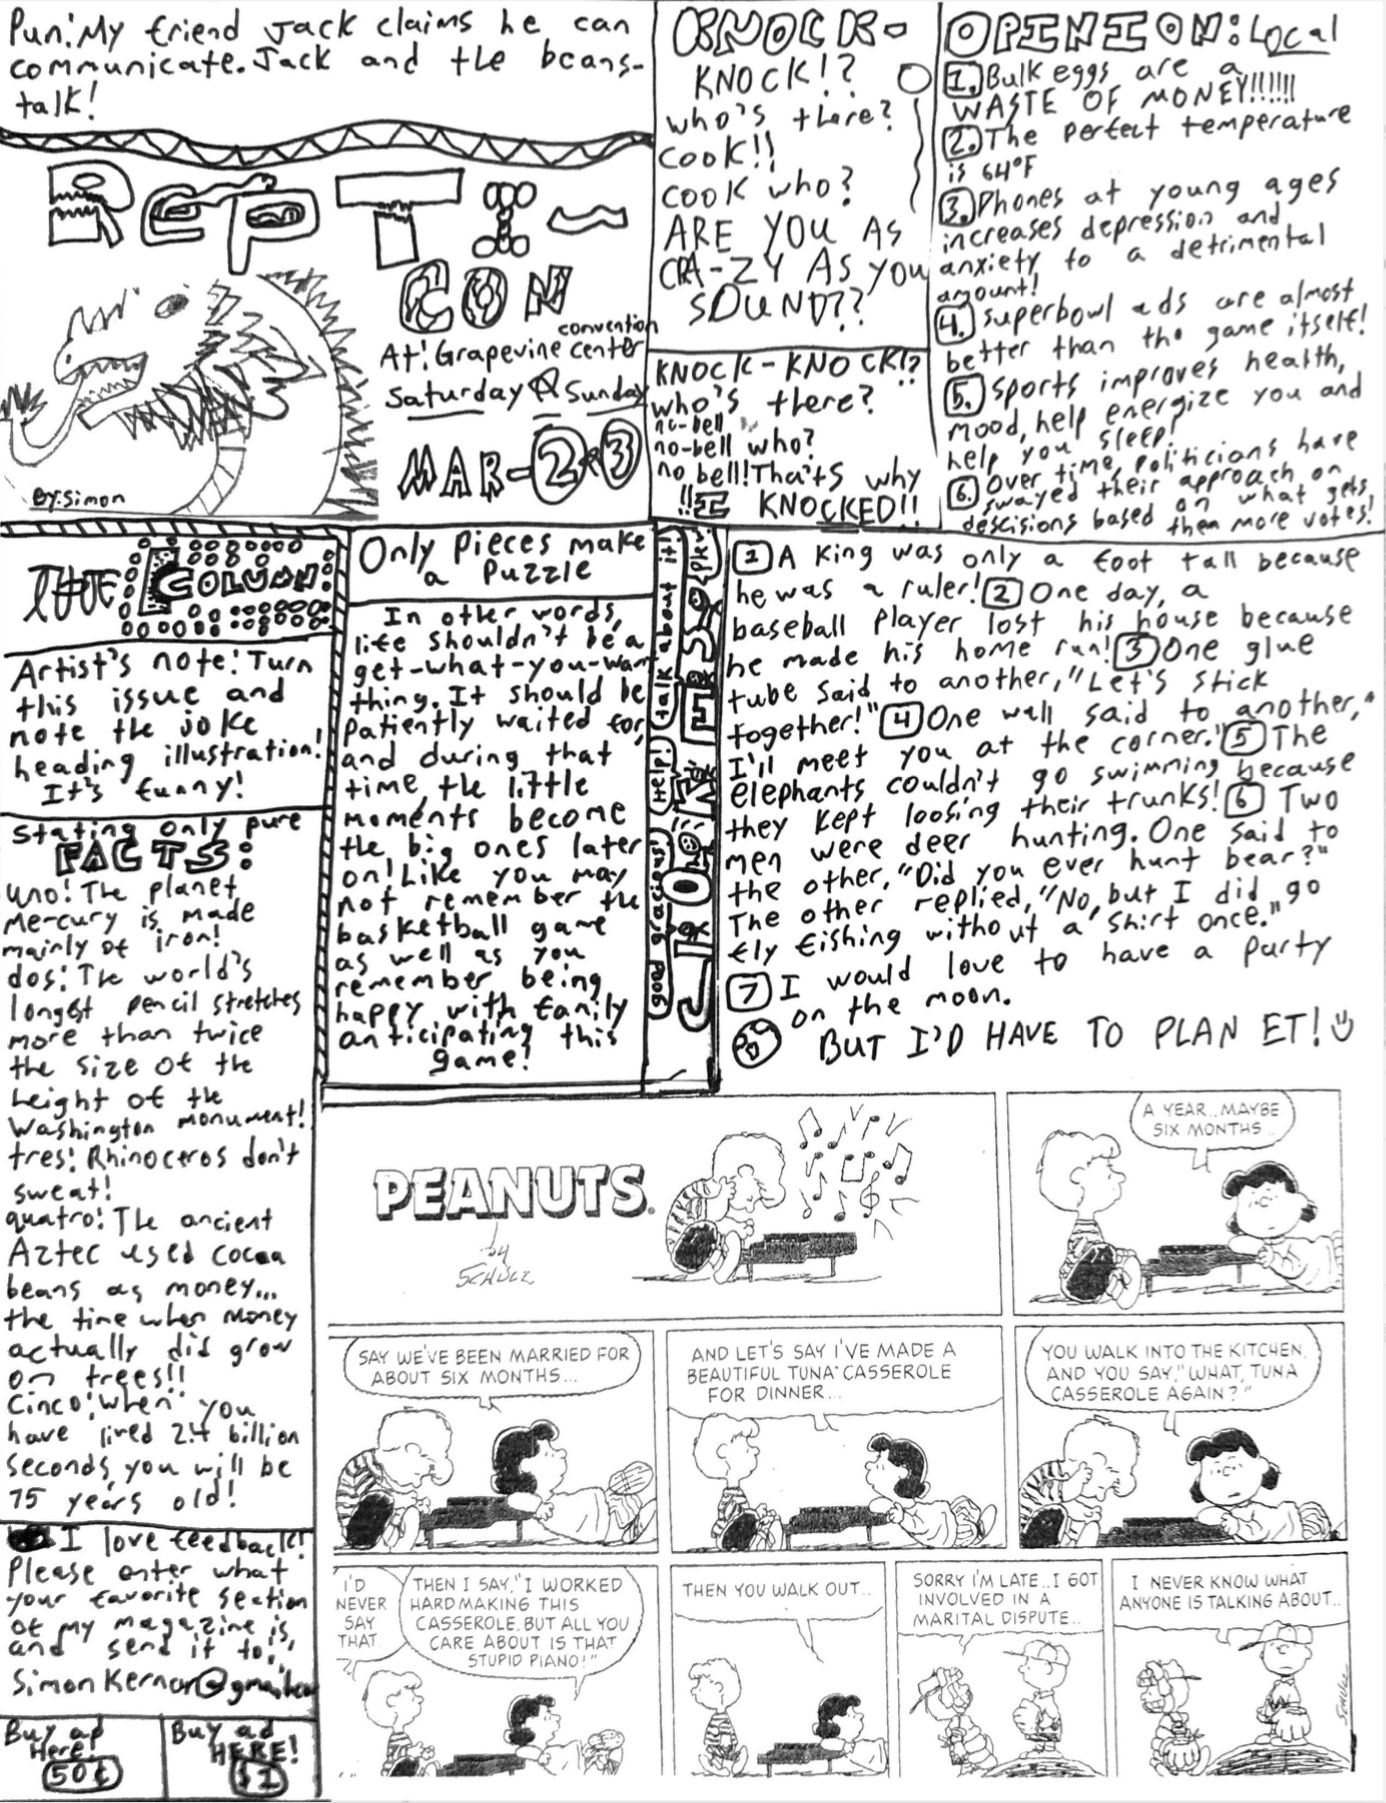 Pun: My friend Jack claims he can
communicate. Jack and the beans-
talk!
REPTI-
CON
At: Grapevine convention center
Saturday & Sunday
MAR-2&3
By: Simon
KNOCK-
KNOCK!?
who's there?
COOK!!
COOK who?
ARE YOU AS
CRA-ZY AS YOU
SOUND??
KNOCK-KNOCK!?
who's there?
no-bell
no-bell who?
no bell! That's why
!!I KNOCKED!!
OPINION: Local
1. Bulk eggs are a
WASTE OF MONEY!!!!!!
2. The perfect temperature
is 64°F
3. Phones at young ages
increases depression and
anxiety to a detrimental
amount!
4. superbowl ads are almost
better than the game itself!
5. Sports improves health,
mood, help energize you and
help you sleep!
6. Over time, politicians have
swayed their approach on
descisions based on what gets
them more votes!
THE COLUMN
Artist's note: Turn
this issue and
note the joke
heading illustration!
It's funny!
Stating only pure
FACTS:
uno: The planet
Mercury is made
mainly of iron!
dos: The world's
longest pencil stretches
more than twice
the size of the
height of the
Washington monument!
tres: Rhinoceros don't
sweat!
quatro: The ancient
Aztec used cocoa
beans as money...
the time when money
actually did grow
on trees!!
Cinco: when you
have lived 2.4 billion
seconds, you will be
75 years old!
I love feedback!
Please enter what
your favorite section
of my magazine is,
and send it to:
Buy ad
Here!
50¢
Buy ad
HERE!
$1
Only pieces make
a puzzle
In other words,
life shouldn't be a
get-what-you-want
thing. It should be
patiently waited for,
and during that
time, the little
moments become
the big ones later
on! Like you may
not remember the
basketball game
as well as you
remember being
happy with family
anticipating this
game!
JOKES
good gracious!
Help!
talk about it!
1 A king was only a foot tall because
he was a ruler! 2 One day, a
baseball player lost his house because
he made his home run! 3 One glue
tube said to another, "Let's stick
together!" 4 One wall said to another, "
I'll meet you at the corner." 5 The
elephants couldn't go swimming because
they kept loosing their trunks! 6 Two
men were deer hunting. One said to
the other, "Did you ever hunt bear?"
The other replied, "No, but I did go
fly fishing without a shirt once."
7 I would love to have a party
on the moon.
BUT I'D HAVE TO PLAN ET!
PEANUTS.
by
SCHULZ
A YEAR.. MAYBE
SIX MONTHS..
SAY WE'VE BEEN MARRIED FOR
ABOUT SIX MONTHS...
AND LET'S SAY I'VE MADE A
BEAUTIFUL TUNA CASSEROLE
FOR DINNER...
YOU WALK INTO THE KITCHEN,
AND YOU SAY, "WHAT, TUNA
CASSEROLE AGAIN?"
I'D
NEVER
SAY
THAT.
THEN I SAY, "I WORKED
HARD MAKING THIS
CASSEROLE, BUT ALL YOU
CARE ABOUT IS THAT
STUPID PIANO!"
THEN YOU WALK OUT..
SORRY I'M LATE.. I GOT
INVOLVED IN A
MARITAL DISPUTE..
I NEVER KNOW WHAT
ANYONE IS TALKING ABOUT..
SCHULZ